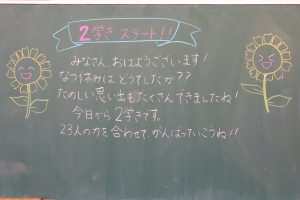 2学き スタート!!
みなさん、おはようございます!
なつ休みは どうでしたか??
たのしい思い出もたくさんできましたね!
今日から 2学きです。
23人の力を合わせて、がんばっていこうね!!